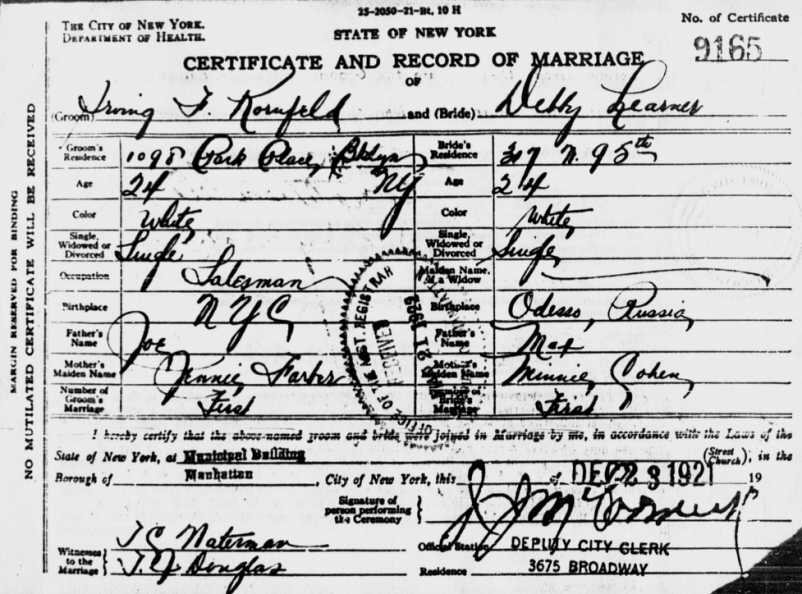 25-2050-21-Bt, 10 H
THE CITY OF NEW YORK.
DEPARTMENT OF HEALTH.
STATE OF NEW YORK
No. of Certificate
9165
CERTIFICATE AND RECORD OF MARRIAGE
OF
(Groom) Irving F. Kornfeld and (Bride) Debby Learner
Groom's Residence 1098 Park Place, Bklyn NY Bride's Residence 317 N. 95th
Age 24 Age 24
Color White Color White
Single, Widowed or Divorced Single Single, Widowed or Divorced Single
Occupation Salesman Maiden Name, if a Widow
Birthplace NYC Birthplace Odesso, Russia
Father's Name Joe Father's Name Max
Mother's Maiden Name Jennie Farber Mother's Maiden Name Minnie Cohen
Number of Groom's Marriage First Number of Bride's Marriage First
I hereby certify that the above-named groom and bride were joined in Marriage by me, in accordance with the Laws of the
State of New York, at Municipal Building (Street Church), in the
Borough of Manhattan, City of New York, this of DEC 23 1921 19
Signature of person performing the Ceremony
Witnesses to the Marriage
J C Naterman
T. J. Douglas
Official Station DEPUTY CITY CLERK
Residence 3675 BROADWAY
MARGIN RESERVED FOR BINDING
NO MUTILATED CERTIFICATE WILL BE RECEIVED